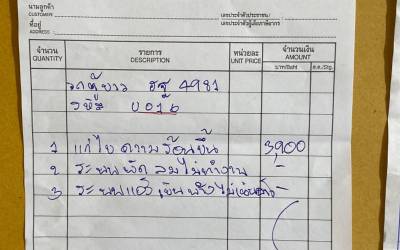 นามลูกค้า
CUSTOMER
เลขประจำตัวประชาชน/
ที่อยู่
เลขประจำตัวผู้เสียภาษีอากร
ADDRESS
จำนวน รายการ หน่วยละ จำนวนเงิน
QUANTITY DESCRIPTION UNIT PRICE AMOUNT
บาท/Baht ส.ต./Stg.
รถตู้ขาว ฮฐ 4981
รหัส U016
1 แก้ไขความร้อนขึ้น 3,900
2 ระบบพัดลมไม่ทำงาน -
3 ระบบแอร์ -